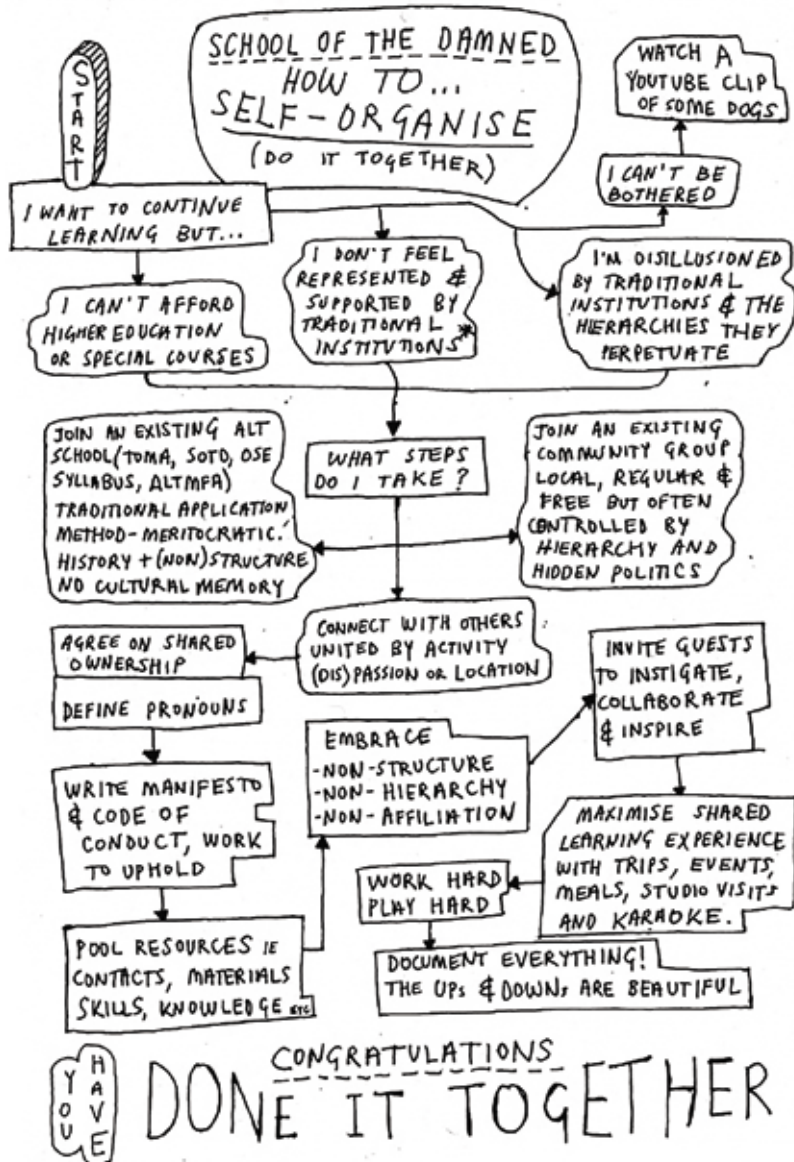 SCHOOL OF THE DAMNED
HOW TO...
SELF-ORGANISE
(DO IT TOGETHER)
START
I WANT TO CONTINUE
LEARNING BUT...
WATCH A
YOUTUBE CLIP
OF SOME DOGS
I CAN'T BE
BOTHERED
I CAN'T AFFORD
HIGHER EDUCATION
OR SPECIAL COURSES
I DON'T FEEL
REPRESENTED &
SUPPORTED BY
TRADITIONAL
INSTITUTIONS*
I'M DISILLUSIONED
BY TRADITIONAL
INSTITUTIONS & THE
HIERARCHIES THEY
PERPETUATE
WHAT STEPS
DO I TAKE?
JOIN AN EXISTING ALT
SCHOOL (TOMA, SOTD, OSE
SYLLABUS, ALTMFA)
TRADITIONAL APPLICATION
METHOD-MERITOCRATIC.
HISTORY + (NON)STRUCTURE
NO CULTURAL MEMORY
JOIN AN EXISTING
COMMUNITY GROUP
LOCAL, REGULAR &
FREE BUT OFTEN
CONTROLLED BY
HIERARCHY AND
HIDDEN POLITICS
CONNECT WITH OTHERS
UNITED BY ACTIVITY
(DIS)PASSION OR LOCATION
AGREE ON SHARED
OWNERSHIP
DEFINE PRONOUNS
WRITE MANIFESTO
& CODE OF
CONDUCT, WORK
TO UPHOLD
POOL RESOURCES IE
CONTACTS, MATERIALS
SKILLS, KNOWLEDGE ETC
EMBRACE
-NON-STRUCTURE
-NON-HIERARCHY
-NON-AFFILIATION
INVITE GUESTS
TO INSTIGATE,
COLLABORATE
& INSPIRE
MAXIMISE SHARED
LEARNING EXPERIENCE
WITH TRIPS, EVENTS,
MEALS, STUDIO VISITS
AND KARAOKE.
WORK HARD
PLAY HARD
DOCUMENT EVERYTHING!
THE UPs & DOWNs ARE BEAUTIFUL
CONGRATULATIONS
YOU HAVE
DONE IT TOGETHER